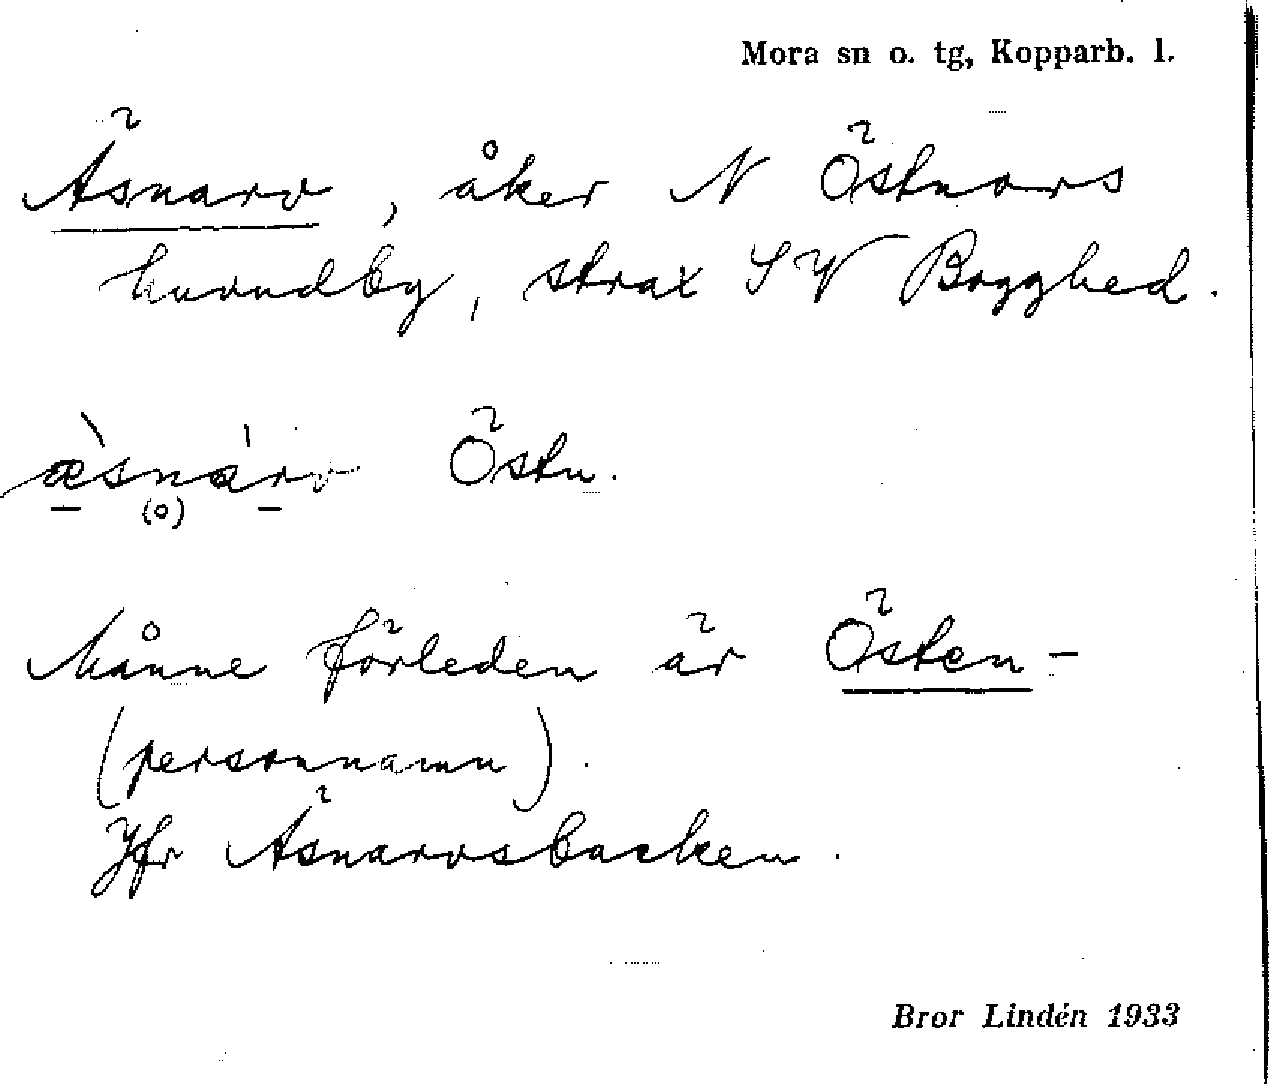 Mora sn o. tg, Kopparb. l.
Äsnarv, åker N Östnors
huvudby, strax SV Bogghed.
æ̀snárv Östn.
(o)
Månne förleden är Östen-
(personnamn).
Jfr Äsnarvsbacken.
Bror Lindén 1933